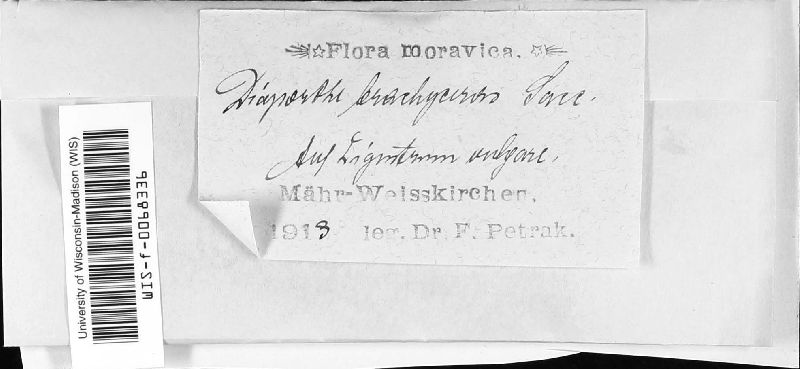 Flora moravica.
Diaporthe brachyceras Sacc.
Auf Ligustrum vulgare.
Mähr-Weisskirchen.
1913 leg. Dr. F. Petrak.
University of Wisconsin-Madison (WIS)
WIS-f-0068336